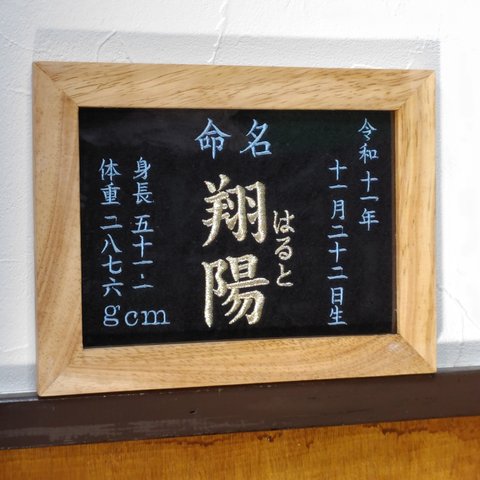 命名
令和十一年
十一月二十二日生
翔陽
はると
身長 五十一.一cm
体重 二八七六g